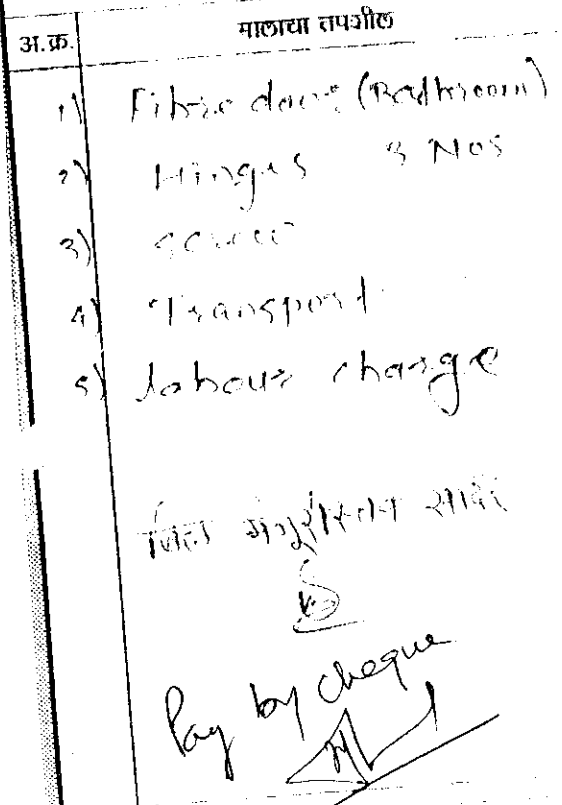 अ.क्र. मालाचा तपशील
1) Fibre door (Bathroom)
2) Hinges 3 Nos
3) screw
4) Transport
5) labour charge
बिल मंजूरीस्तव सादर
Pay by cheque